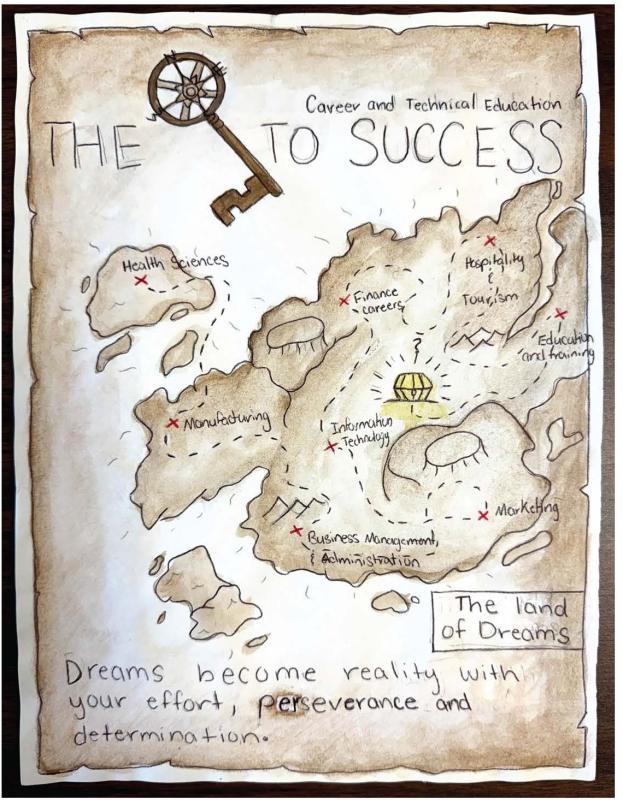 Career and Technical Education
THE TO SUCCESS
Health Sciences
Hospitality
&
Tourism
Finance
careers
Education
and training
Manufacturing
Information
Technology
Marketing
Business Management,
& Administration
The land
of Dreams
Dreams become reality with
your effort, perseverance and
determination.